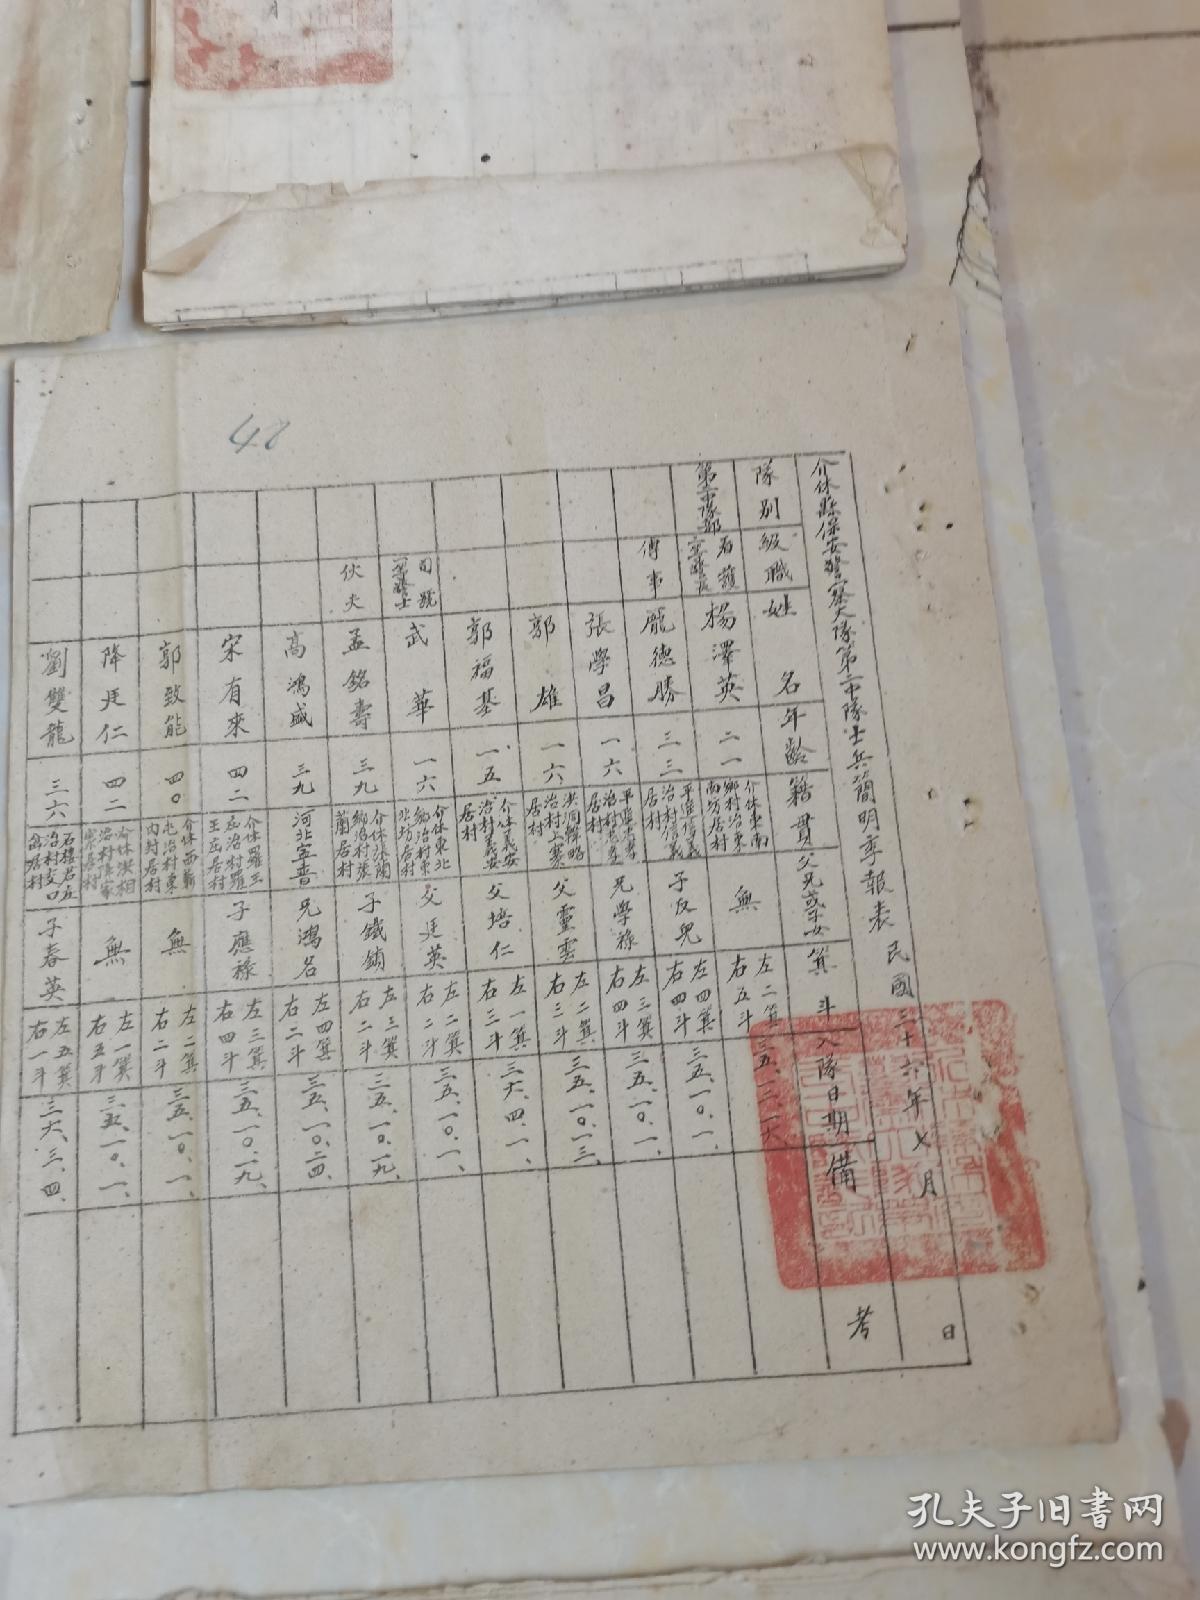 月
42
介休縣保安警察大隊第二中隊士兵簡明季報表 民國三十六年七月 日
隊別 級職 姓名 年齡 籍貫 父兄或子女 箕斗 入隊日期 備考
第二中隊部 看護 楊澤英 二一 介休東南鄉村治東南坊居村 無 左二箕右五斗 三五、一二、一六、
傳事 龐德勝 三三 平遙信義治村信義居村 子反兒 左四箕右四斗 三五、一〇、一、
張學昌 一六 兄學祿 左三箕右四斗 三五、一〇、一、
郭雄 一六 父靈雲 左二箕右三斗 三五、一〇、一三、
郭福基 一五 介休義安治村義安居村 父培仁 左一箕右三斗 三六、四、一、
司號 武華 一六 介休東北鄉治村東北坊居村 父廷英 左二箕右二斗 三五、一〇、一、
伙夫 孟銘壽 三九 介休張蘭鄉治村張蘭居村 子鐵鎖 左三箕右二斗 三五、一〇、一九、
高鴻盛 三九 河北寧晉 兄鴻名 左四箕右二斗 三五、一〇、二四、
宋有來 四二 介休羅王庄治村羅王庄居村 子應祿 左三箕右四斗 三五、一〇、一九、
郭致能 四〇 無 左二箕右二斗 三五、一〇、一、
降廷仁 四二 無 左一箕右五斗 三五、一〇、一、
劉雙龍 三六 子春英 左五箕右一斗 三六、三、四、
孔夫子旧书网
www.kongfz.com